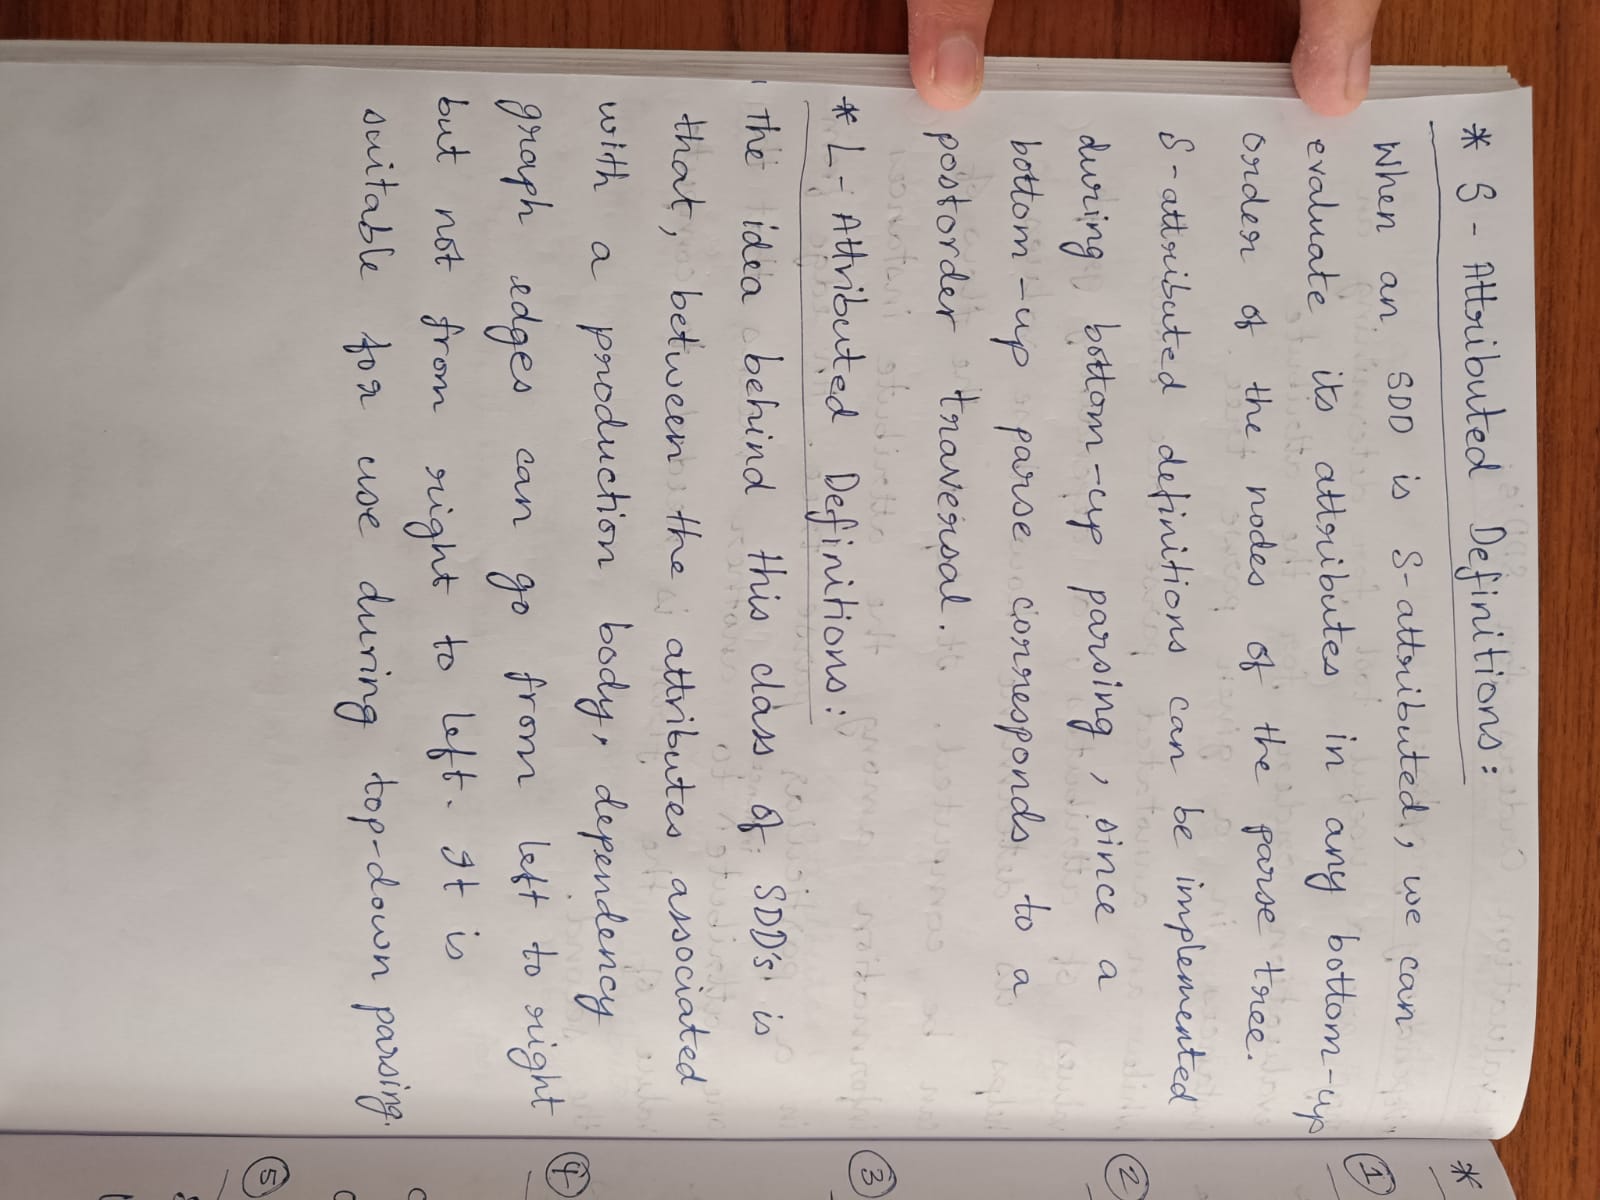 * S - Attributed Definitions :
When an SDD is S-attributed, we can
evaluate its attributes in any bottom-up
order of the nodes of the parse tree.
S-attributed definitions can be implemented
during bottom-up parsing, since a
bottom-up parse corresponds to a
postorder traversal.
* L - Attributed Definitions :
The idea behind this class of SDD's is
that, between the attributes associated
with a production body, dependency
graph edges can go from left to right
but not from right to left. It is
suitable for use during top-down parsing.
*
1
2
3
4
5